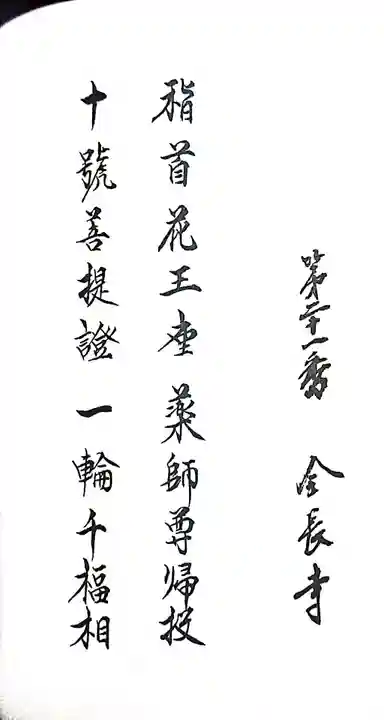 第二十一番 金長寺
稽首花王座 薬師尊帰投
十號菩提證 一輪千福相